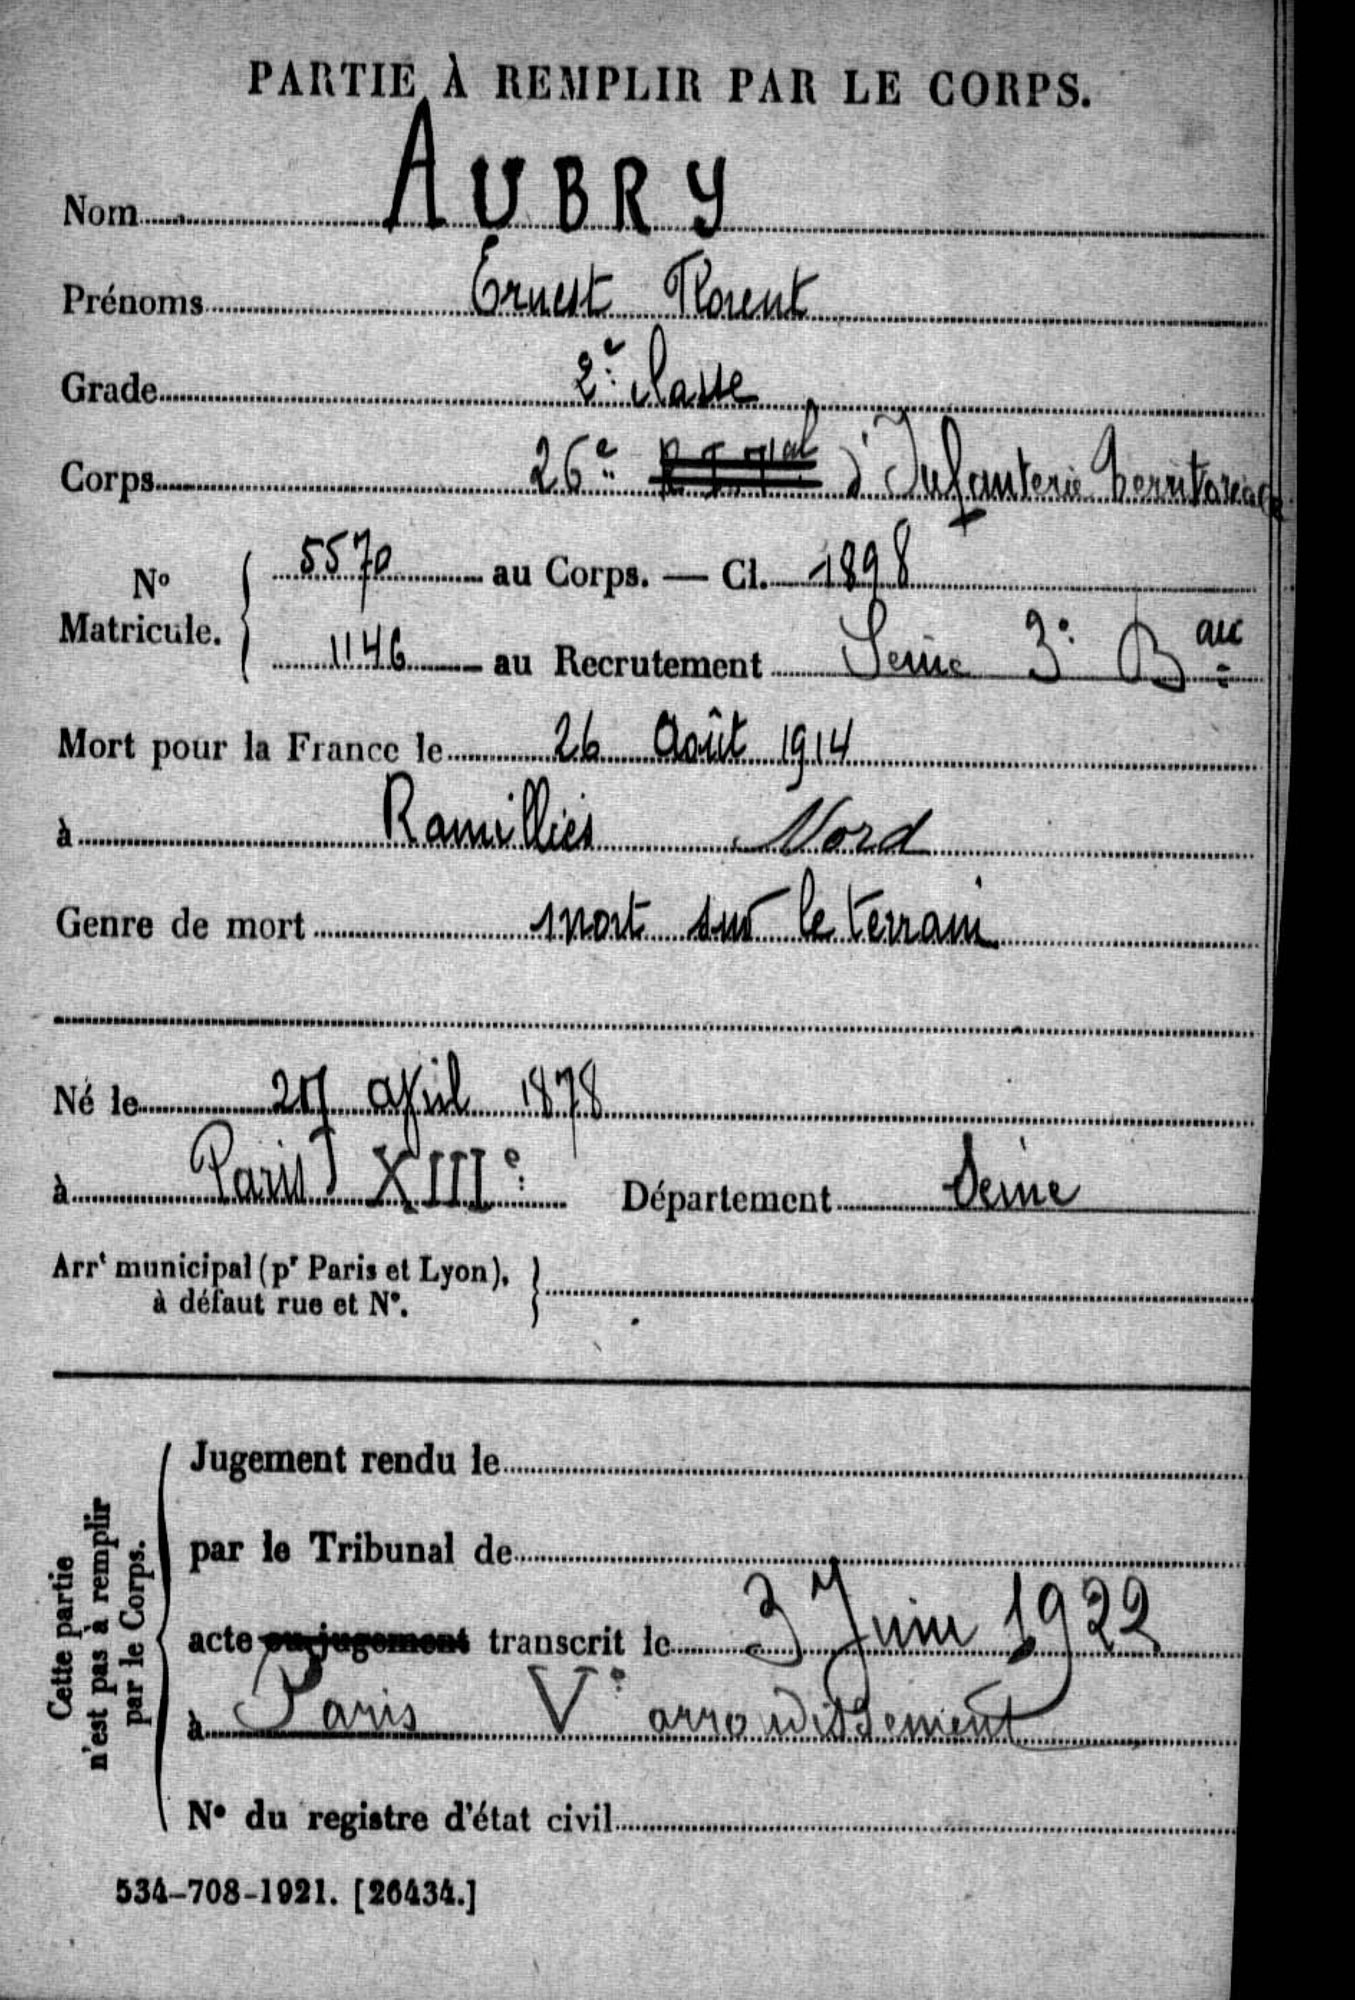 PARTIE À REMPLIR PAR LE CORPS.
Nom AUBRY
Prénoms Ernest Florent
Grade 2e classe
Corps 26e R I Tal d'Infanterie Territoriale
No Matricule. 5570 au Corps. — Cl. 1898
1146 au Recrutement Seine 3e Bau
Mort pour la France le 26 Août 1914
à Ramillies Nord
Genre de mort mort sur le terrain
Né le 27 avril 1878
à Paris XIIIe Département Seine
Arrt municipal (pr Paris et Lyon),
à défaut rue et No.
Cette partie
n'est pas à remplir
par le Corps.
Jugement rendu le
par le Tribunal de
acte ou jugement transcrit le 3 Juin 1922
à Paris Ve arrondissement
No du registre d'état civil
534-708-1921. [26434.]